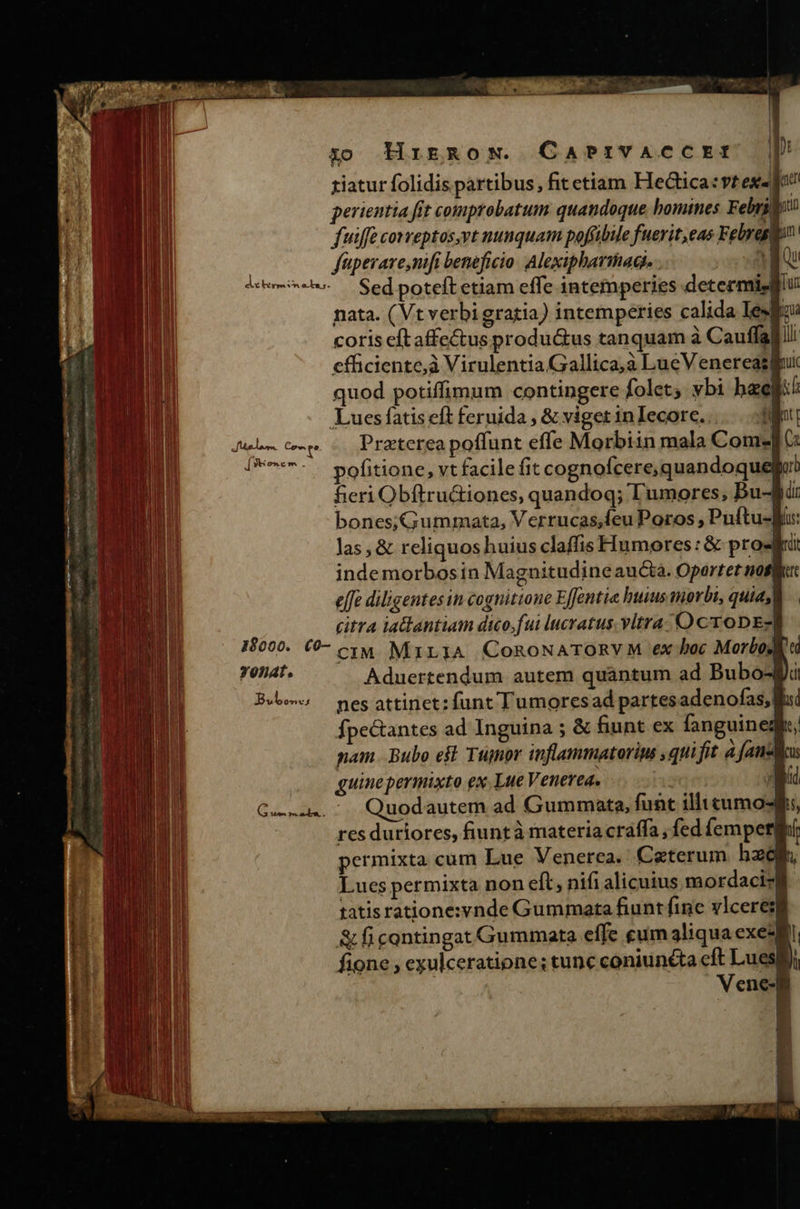 40 HIERON. CAPIVACCEI
tiatur ſolidis partibus, fit etiam Hectica: vt ex-
perientia ſit comprobatum quandoque homines Febri
fuiſſe correptos, vt nunquam poſſibile fuerit, eas Febres
ſuperare, niſi beneficio Alexipharmaci.
determinatas. Sed poteſt etiam eſſe intemperies determi-
nata. (Vt verbi gratia) intemperies calida Ie-
coris eſt affectus productus tanquam à Cauſſa
efficiente, à Virulentia Gallica, à Lue Venerea:
quod potiſſimum contingere ſolet, vbi hæc
Lues ſatis eſt feruida, & viget in Iecore.
Malam Compo Præterea poſſunt eſſe Morbi in mala Com-
ſitionem. poſitione, vt facile fit cognoſcere, quandoque
fieri Obſtructiones, quandoq; Tumores, Bu-
bones, Gummata, Verrucas, ſeu Poros, Puſtu-
las, & reliquos huius claſſis Humores: & pro-
inde morbos in Magnitudine aucta. Oportet nos
eſſe diligentes in cognitione Eſſentiæ huius morbi, quia,
citra iactantiam dico, fui lucratus vltra OCTODE-
18000. co- CIM MILIA CORONATORVM ex hoc Morbo.
ronat. Aduertendum autem quantum ad Bubo-
Bubones nes attinet: ſunt Tumores ad partes adenoſas,
ſpectantes ad Inguina; & fiunt ex ſanguine:
nam Bubo eſt Tumor inflammatorius, qui fit à ſan-
guine permixto ex Lue Venerea.
Gummata. Quod autem ad Gummata, ſunt illi tumo-
res duriores, fiunt à materia craſſa, ſed ſemper
permixta cum Lue Venerea. Cæterum hæc
Lues permixta non eſt, niſi alicuius mordaci-
tatis ratione: vnde Gummata fiunt ſine vlcere:
& ſi contingat Gummata eſſe cum aliqua exe-
ſione, exulceratione; tunc coniuncta eſt Lues
Vene-